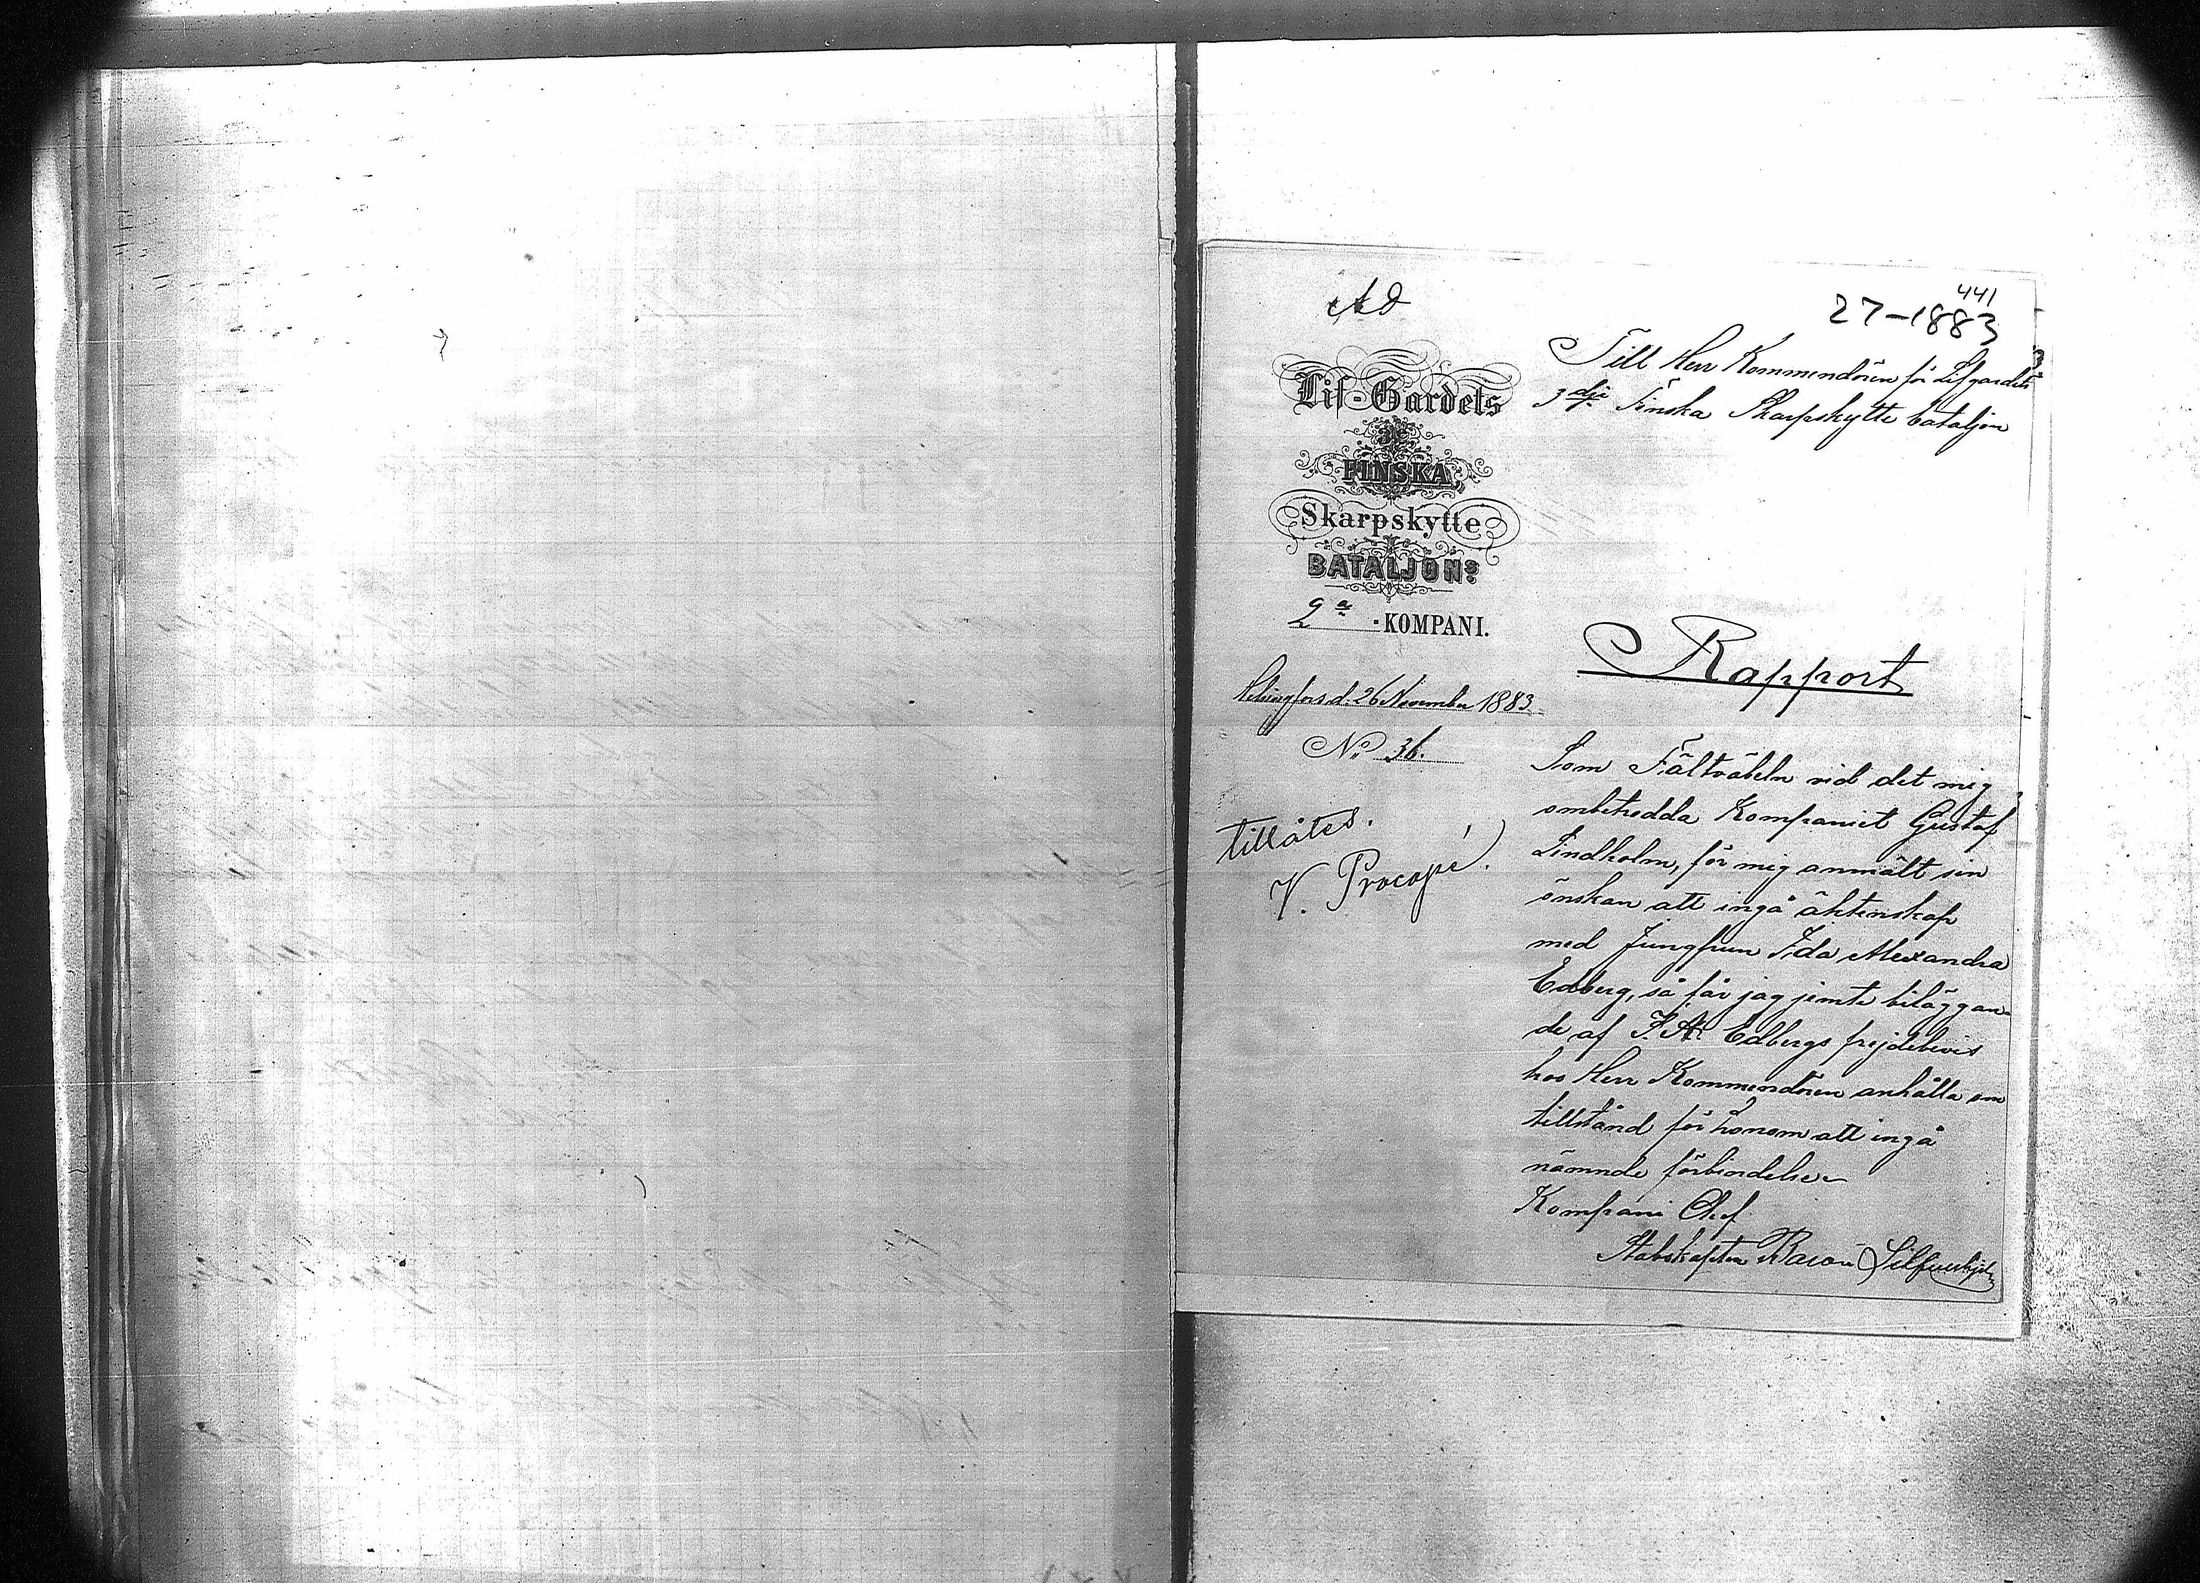 Ad
441
27-1883
Lif-Gardets
3e
FINSKA,
Skarpskytte
BATALJONs
2a -KOMPANI.
Helsingfors d: 26 November 1883
No 36.
tillåtes.
V. Procopé.
Till Herr Kommendören för Lifgardets
3dje Finska Skarpskytte bataljon
Rapport
Som Fältväbeln vid det mig
ombetrodda Kompaniet Gustaf
Lindholm, för mig anmält sin
önskan att ingå äktenskap
med Jungfrun Ida Alexandra
Edberg, så får jag jemte biläggan-
de af I. A. Edbergs frejdebevis
hos Herr Kommendören anhålla om
tillstånd för honom att ingå
nämnde förbindelse
Kompani Chef
Stabskapten Baron Silfverskjöld